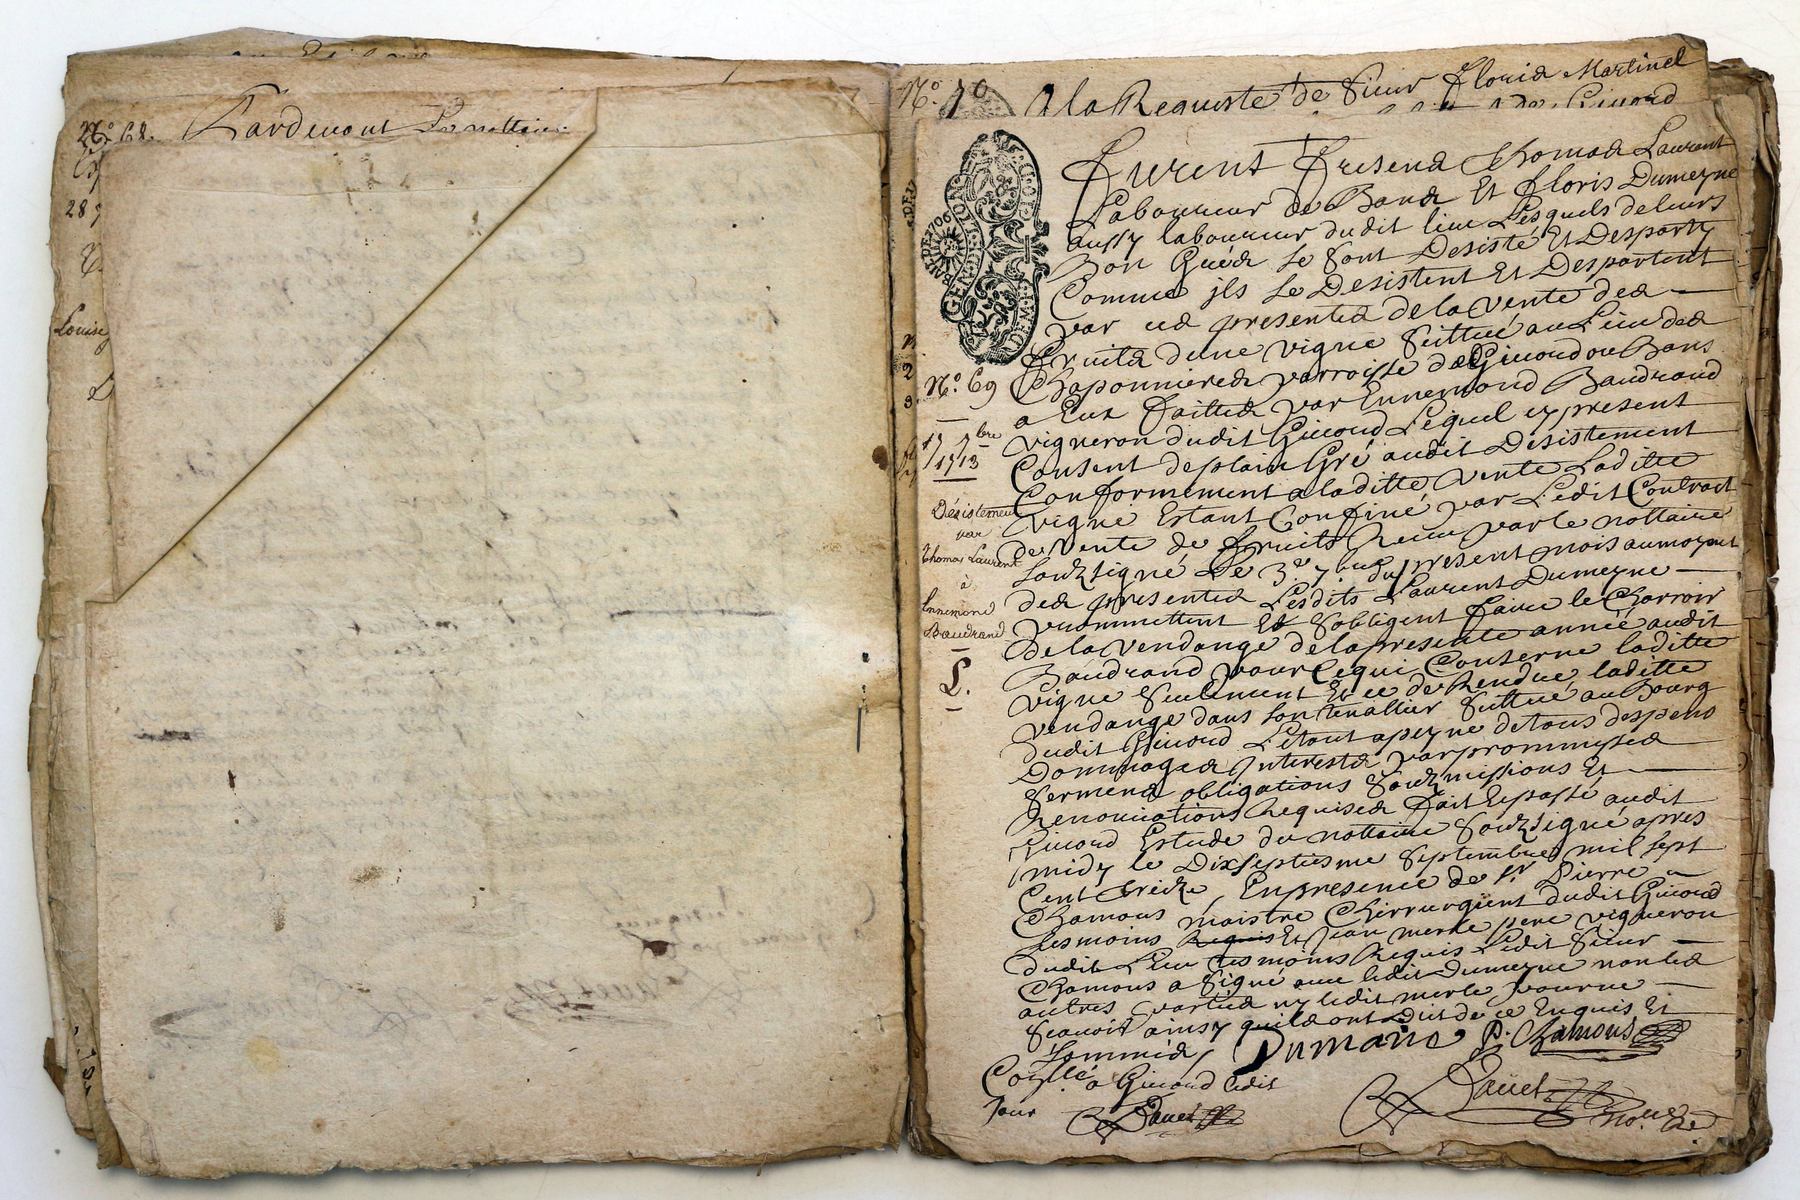 N.° 68. Tardenont No nottaire
287
Louise
N.° 70 A la Requeste de Sieur Floris Martinel
de Givord
GEN. DE LION
N.° 69
17 7bre
1713
Désistement
par
Thomas Laurent
à
Ennemond
Baudrand
L.
furent presens Thomas Laurent
Laboureur de Bans Et floris Dumeyne
aussy laboureur dudit lieu Lesquels de leurs
Bon Grées se sont Desisté Et Desparty
Comme jls se Desistent Et Despartent
par ces presentes de la vente des
fruits dune vigne sittué au Lieu des
Chaponnieres parroisse de Givord ou Bans
a Eux faittes par Ennemond Baudrand
vigneron dudit Givord Lequel cy present
Consent de plain Gré audit Desistement
Conformement a laditte vente Laditte
vigne Estant Confiné par Ledit Contract
de vente de fruits Receu par le nottaire
soubsigné Le 3e. 7bre du present mois au moyent
des presentes Lesdits Laurent Dumeyne
promettent Et sobligent faire le Charroir
de la vendange de la presente année audit
Baudrand pour Cequi Conserne laditte
vigne seulement Et ce de Rendue laditte
vendange dans son tenallier sittué au Bourg
dudit Givord Letout a peyne de tous despens
Dommages Interests par prommisses
sermens obligations soubzmissions Et
Renonciations Requises fait Et passé audit
Givord Estude du nottaire soubzsigné apres
midy le Dixseptiesme septembre mil sept
Cent treize, En presence de sr Pierre
Chamous maistre Chirrurgient dudit Givord
tesmoins Requis Et Jean merle pere vigneron
dudit Lieu tesmoins Requis Ledit sieur
Chamous a signé avec ledit Dumeyne non les
autres parties ny ledit merle pour ne
scavoir ainsy quils ont Dit de ce Enquis Et
sommés /. Dumaine P. Chamous
Conllé a Givord ledit
Jour